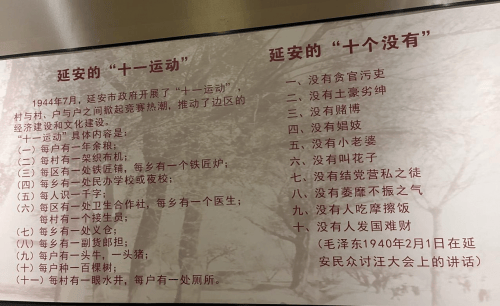 延安的“十一运动”
1944年7月，延安市政府开展了“十一运动”，
村与村、户与户之间掀起竞赛热潮，推动了边区的
经济建设和文化建设。
“十一运动”具体内容是：
（一）每户有一年余粮；
（二）每村有一架织布机；
（三）每区有一处铁匠铺，每乡有一个铁匠炉；
（四）每乡有一处民办学校或夜校；
（五）每人识一千字；
（六）每区有一处卫生合作社，每乡有一个医生；
每村有一个接生员；
（七）每乡有一处义仓；
（八）每乡有一副货郎担；
（九）每户有一头牛，一头猪；
（十）每户种一百棵树；
（十一）每村有一眼水井，每户有一处厕所。
延安的“十个没有”
一、没有贪官污吏
二、没有土豪劣绅
三、没有赌博
四、没有娼妓
五、没有小老婆
六、没有叫花子
七、没有结党营私之徒
八、没有萎靡不振之气
九、没有人吃摩擦饭
十、没有人发国难财
（毛泽东1940年2月1日在延
安民众讨汪大会上的讲话）